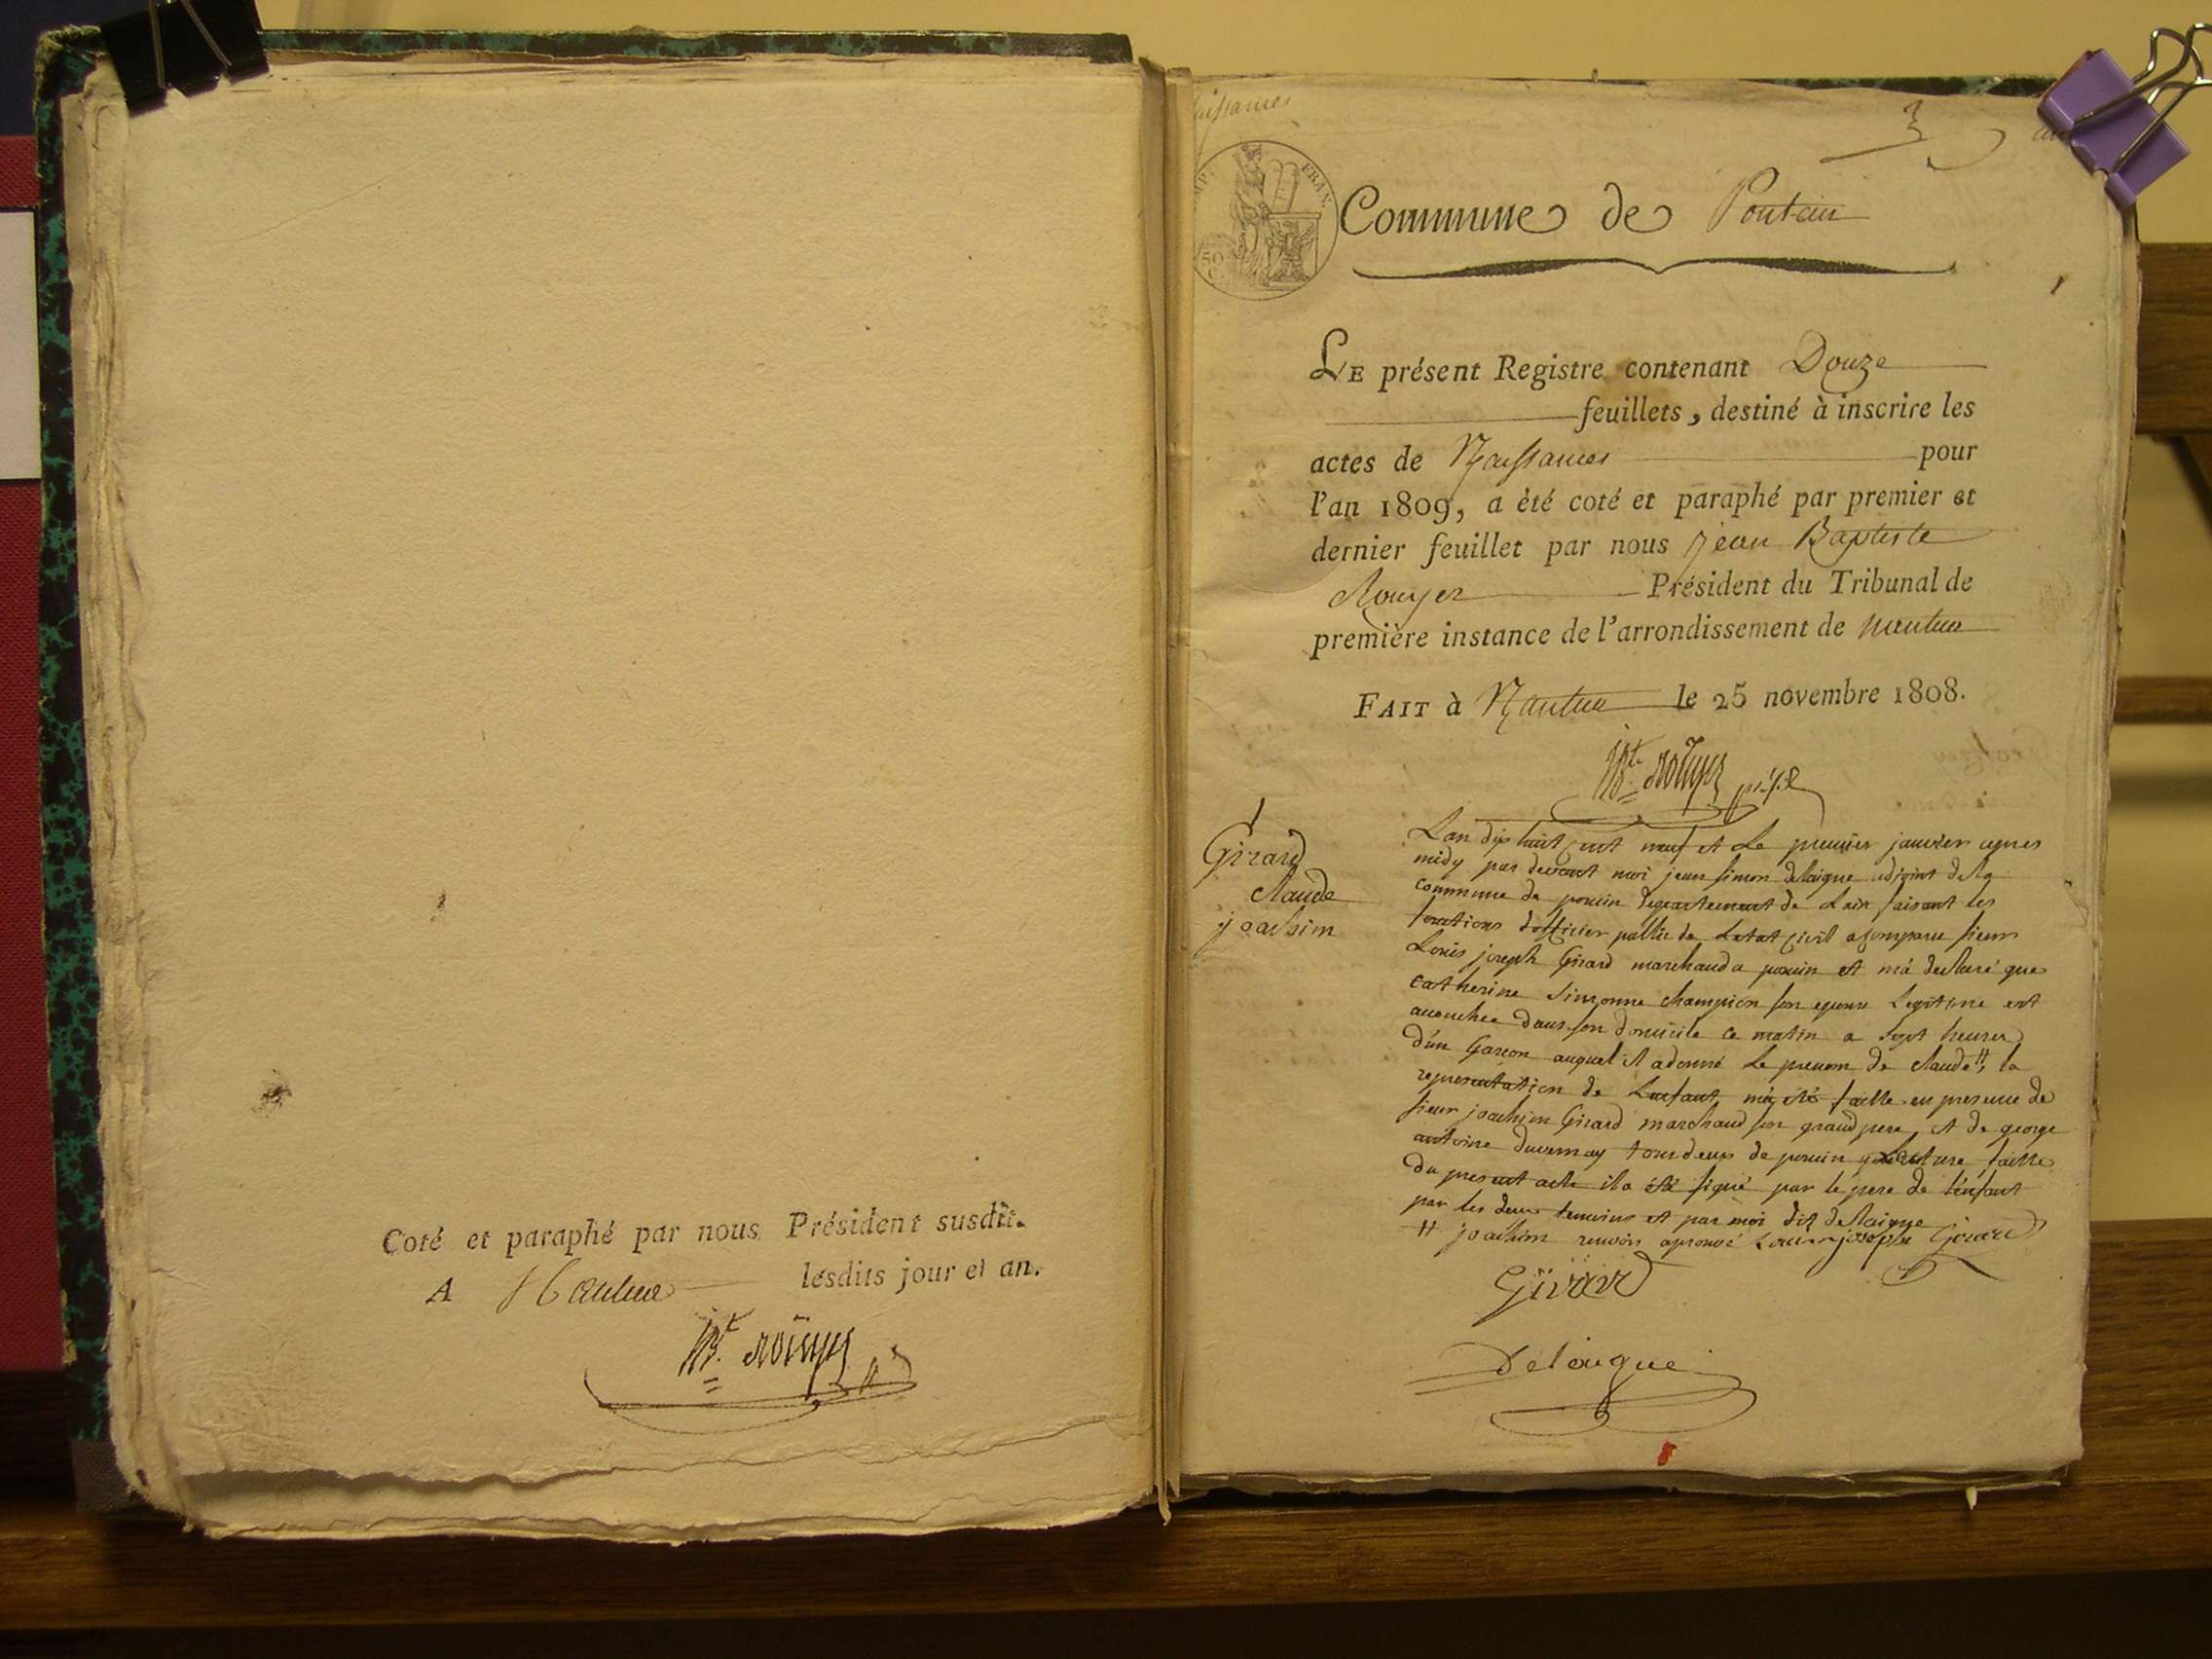 Coté et paraphé par nous Président susdit.
A Nantua lesdits jour et an.
Bte. Rouyer
aissances
3
IMP. FRAN.
50
C.
Commune de Pontcin
1
LE présent Registre contenant Douze
feuillets, destiné à inscrire les
actes de Naissances pour
l'an 1809, a été coté et paraphé par premier et
dernier feuillet par nous jean Baptiste
Rouyer Président du Tribunal de
première instance de l'arrondissement de nantua
FAIT à Nantua le 25 novembre 1808.
Bte. Rouyer
1
Girard
Claude
joachim
Lan dix huit cent neuf et Le premier janvier apres
midy par devant moi jean simon delaigue adjoint dela
commune de poncin departement de Lain faisant les
fonctions d'officier public de Letat Civil a comparu sieur
Louis joseph Girard marchand a poncin et m'a declaré que
Catherine Simonne champion son epouse Legitime est
accouchée dans son domicile ce matin a sept heures
d'un Garcon auquel il a donné Le prenom de claude #, la
representation de Lenfant m'a été faitte en presence de
sieur joachim Girard marchand son grand pere et de george
antoine duvernay tous deux de poncin Lecture faitte
du present acte il a été signé par le pere de l'enfant
par les deux temoins et par moi dit delaigue
# joachim renvoi aprouvé Louis joseph Girard
Girard
Delaigue